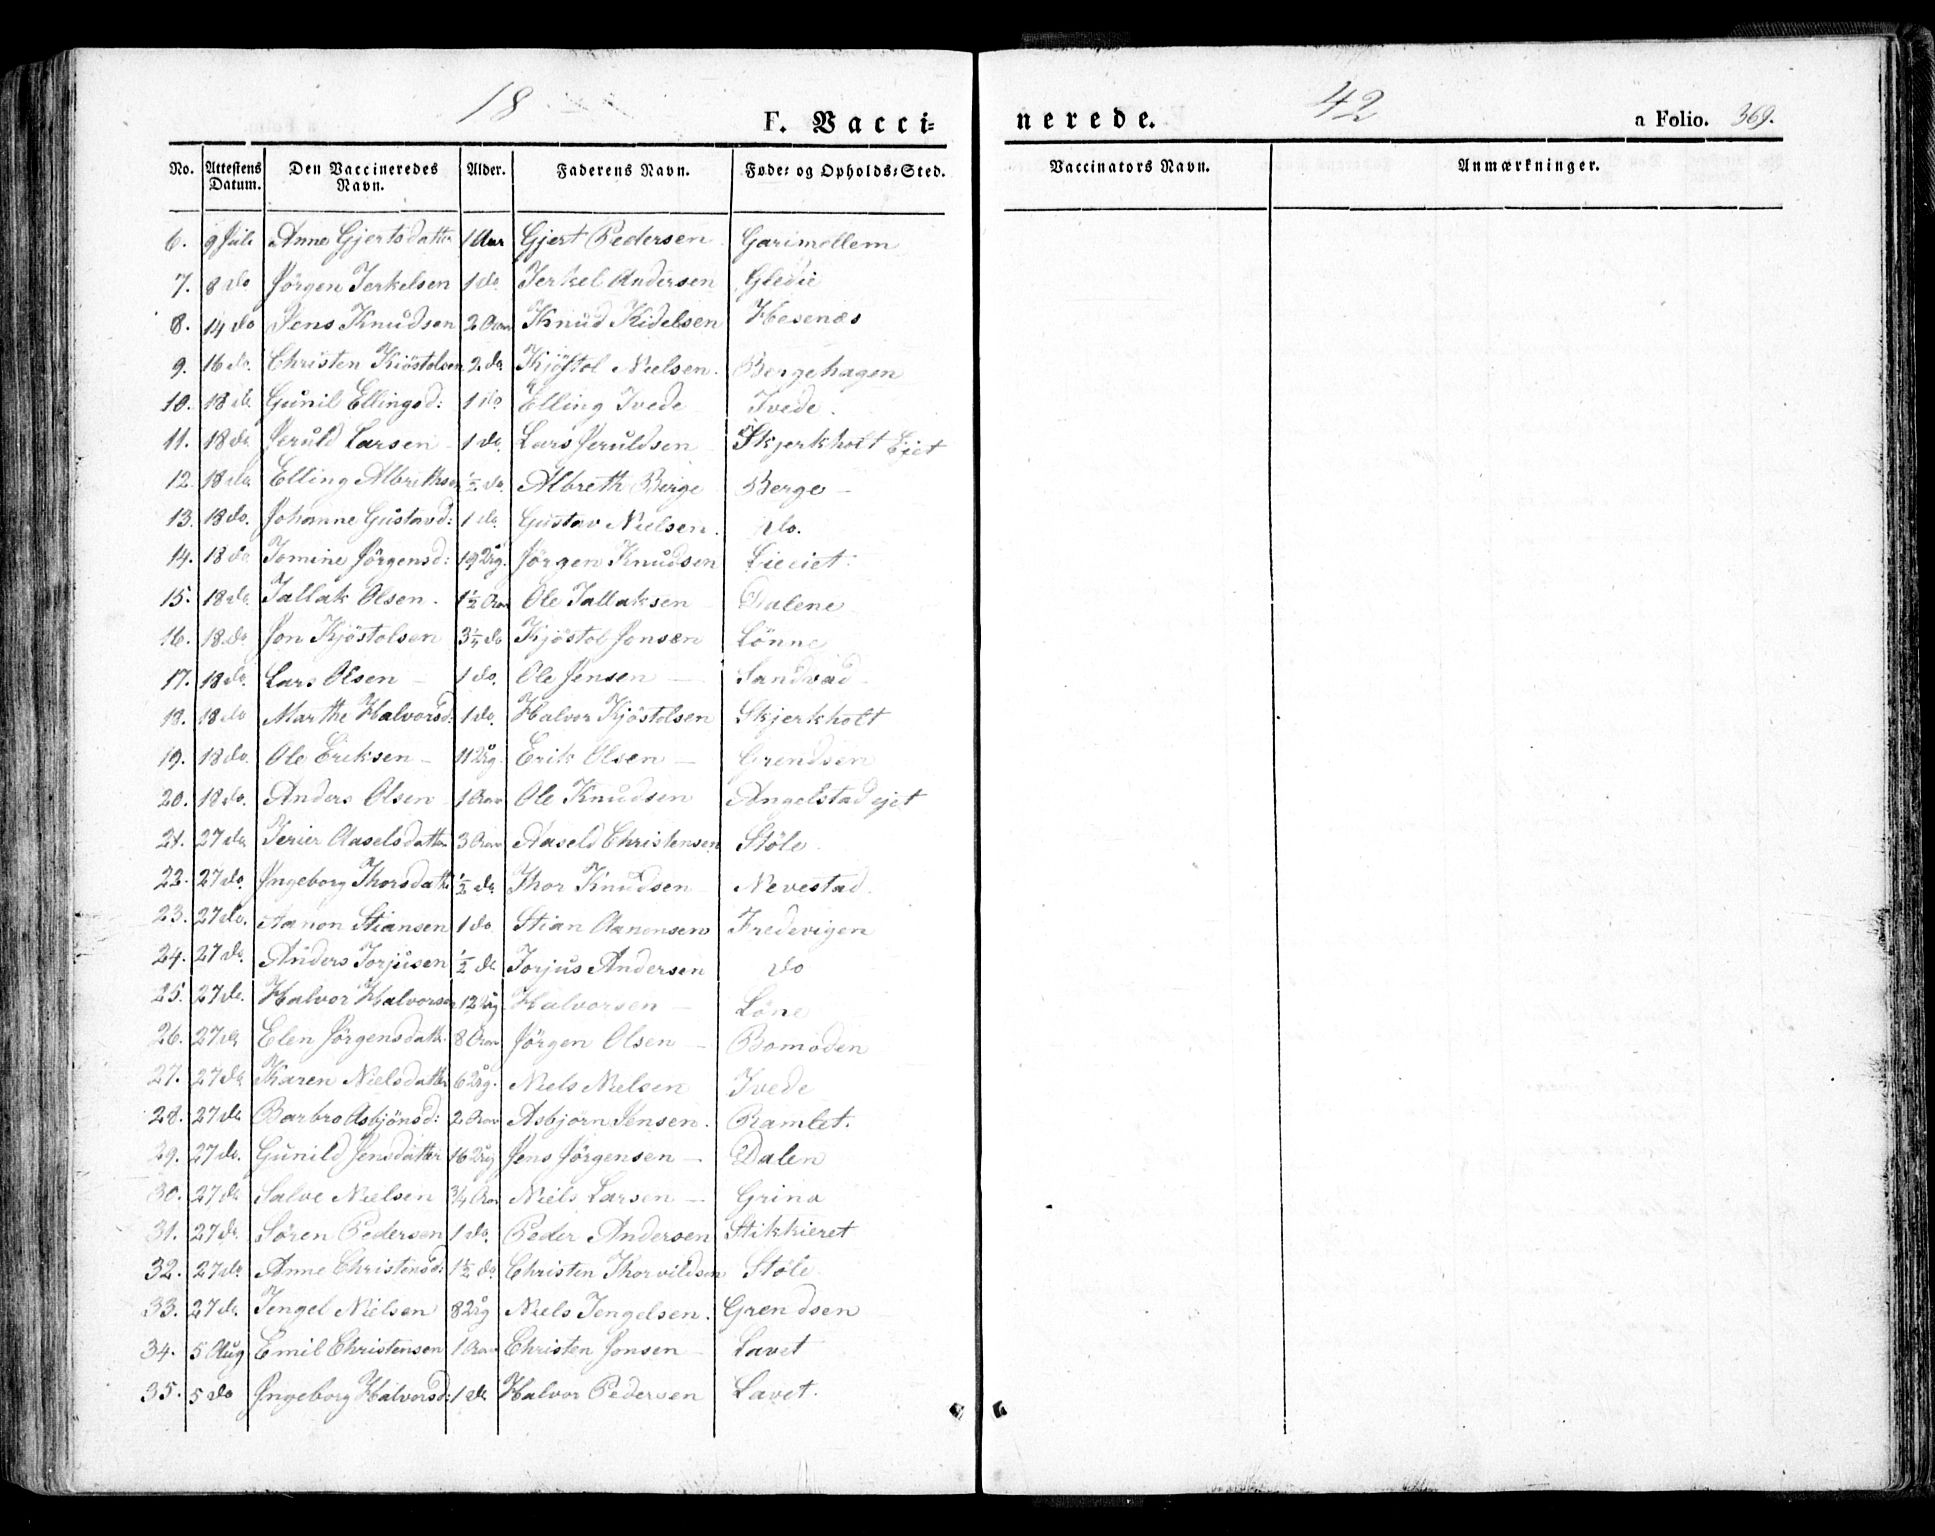 18 42
F. Vacci=nerede. a Folio. 369.
No. Attestens Datum. Den Vaccineredes Navn. Alder. Faderens Navn. Føde= og Opholds=Sted. Vaccinators Navn. Anmærkninger.
6. 9 Juli Anne Gjertsdatter 1 Aar Gjert Pedersen Garimollem
7. 8 do Jörgen Terkelsen 1 do. Terkel Andersen Gledie
8. 14 do Jens Knudsen 2 Aar Knud Kidelsen Hesenæs
9. 16 do. Christen Kiöstolsen 2 do Kjöstol Nielsen. Bergehagen
10. 18 do. Gunil Ellingsd: 1 do Elling Tvede Tvede.
11. 18 do. Jeruld Larsen 1 do. Lars Jeruldsen Skjerkholt Ejet
12. 18 do. Elling Albrethsen ½ do. Albreth Berge Berge
13. 18 do. Johanne Gustavd: 1 do. Gustav Nielsen. do.
14. 18 do Tomine Jörgensd: 19 Aarg. Jörgen Knudsen Lieeiet
15. 18 do. Tallak Olsen. 1½ Aar Ole Tallaksen Dalene
16. 18. do Jon Kjöstolsen 3¼ do Kjöstol Jonsen Lönne
17. 18 do. Lars Olsen 1 do. Ole Jensen Sandvad
18. 18 do Marthe Halvorsd: 1 do. Halvor Kjöstolsen Skjerkholt
19. 18 do. Ole Eriksen 11 Aarg. Erik Olsen Grendsen
20. 18 do. Anders Olsen 1 Aar Ole Knudsen Angelstad ejet
21. 27 do. Terier Aaselsdatter 3 Aar Aaseld Christensen Stöle.
22. 27 do. Ingeborg Thorsdatter ½ do. Thor Knudsen Nevestad.
23. 27 do. Aanon Stiansen 1 do. Stian Aanonsen Fredevigen
24. 27 do. Anders Torjusen ½ do Torjus Andersen do
25. 27 do. Halvor Halvorsen 12 Aarg Halvorsen Löne
26. 27 do Elen Jörgensdatter 8 Aar Jörgen Olsen Bomoden
27. 27 do Karen Nielsdatter 6 Aarg. Niels Nielsen Tvede
28. 27 do Barbro Asbjönsd: 2 Aar Asbjorn Jensen. Ramlet.
29. 27 do. Gunild Jensdatter 16 Aarg Jens Jörgensen Dalen
30. 27 do Salve Nielsen ¾ Aar Niels Larsen Grina
31. 27 do. Sören Pedersen 1 do. Peder Andersen Stikkieret
32. 27 do. Anne Christensd: 1½ do. Christen Thorvildsen Stöle
33. 27 do. Tengel Nielsen 8 Aarg Niels Tengelsen. Grendsen
34. 5 Aug Emil Christensen 1 Aar Christen Jonsen Lavet
35. 5 do Ingeborg Halvorsd: 1 do Halvor Pedersen Lavet.